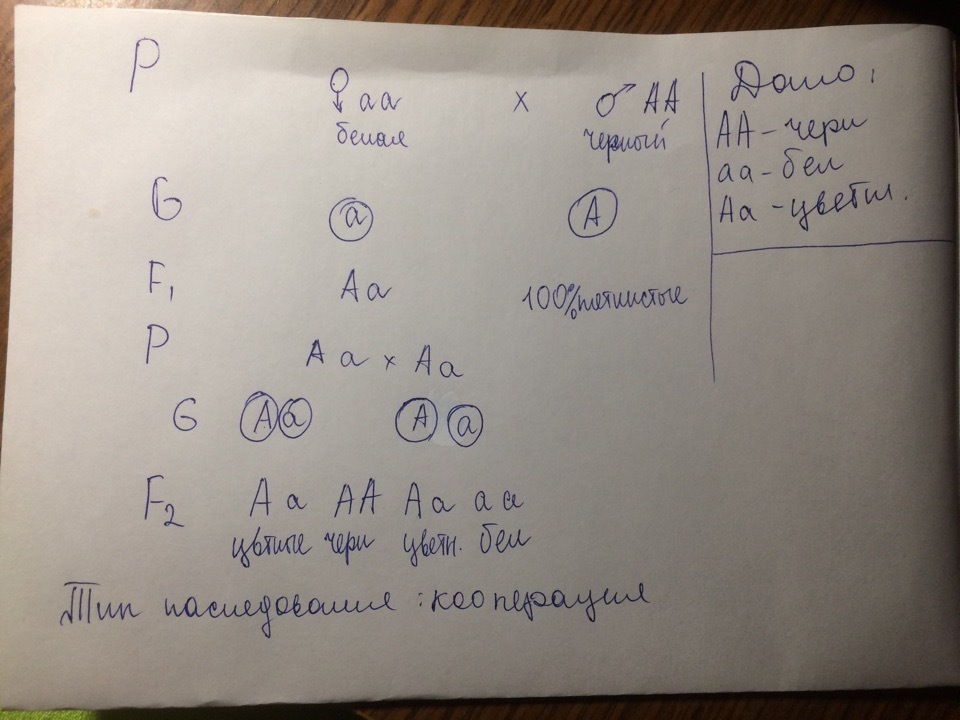 P
♀ aa x ♂ AA
белая черный
G a A
F₁ Aa 100% пятнистые
P Aa x Aa
G A a A a
F₂ Aa AA Aa aa
цвтные черн цветн. бел
Тип наследования : кооперация
Дано:
AA - черн
aa - бел
Aa - цветн.